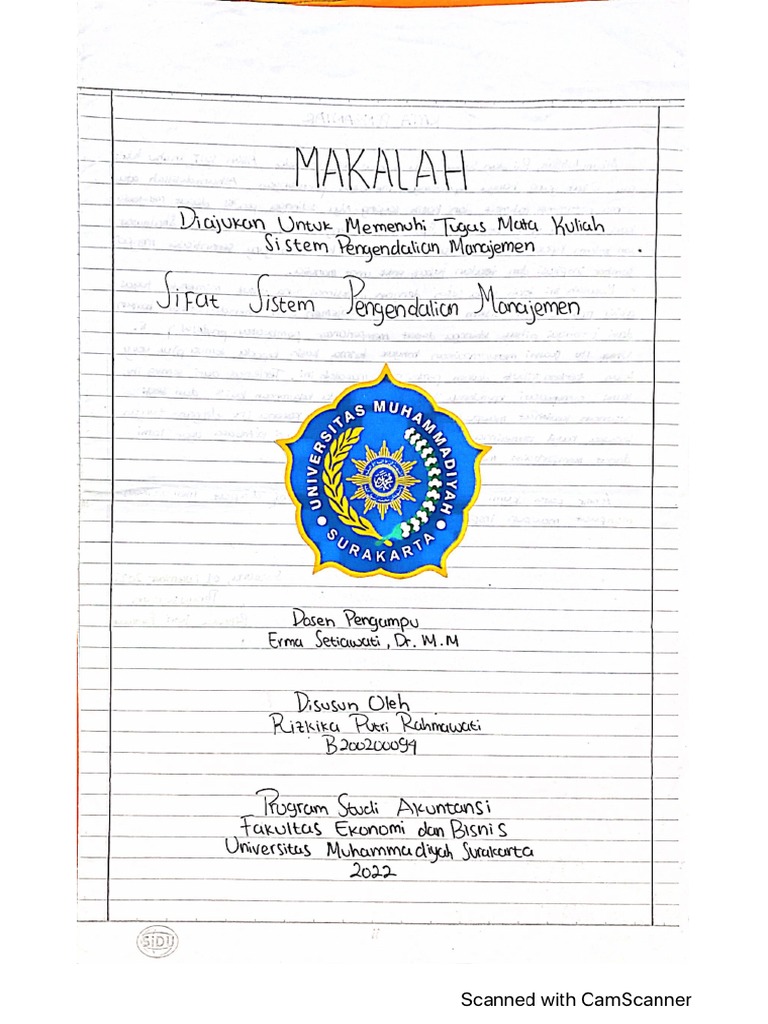 MAKALAH
Diajukan Untuk Memenuhi Tugas Mata Kuliah
Sistem Pengendalian Manajemen
Sifat Sistem Pengendalian Manajemen
UNIVERSITAS MUHAMMADIYAH
SURAKARTA
Dosen Pengampu
Erma Setiawati, Dr. M.M
Disusun Oleh
Rizkika Putri Rahmawati
B200200094
Program Studi Akuntansi
Fakultas Ekonomi dan Bisnis
Universitas Muhammadiyah Surakarta
2022
SiDU
Scanned with CamScanner